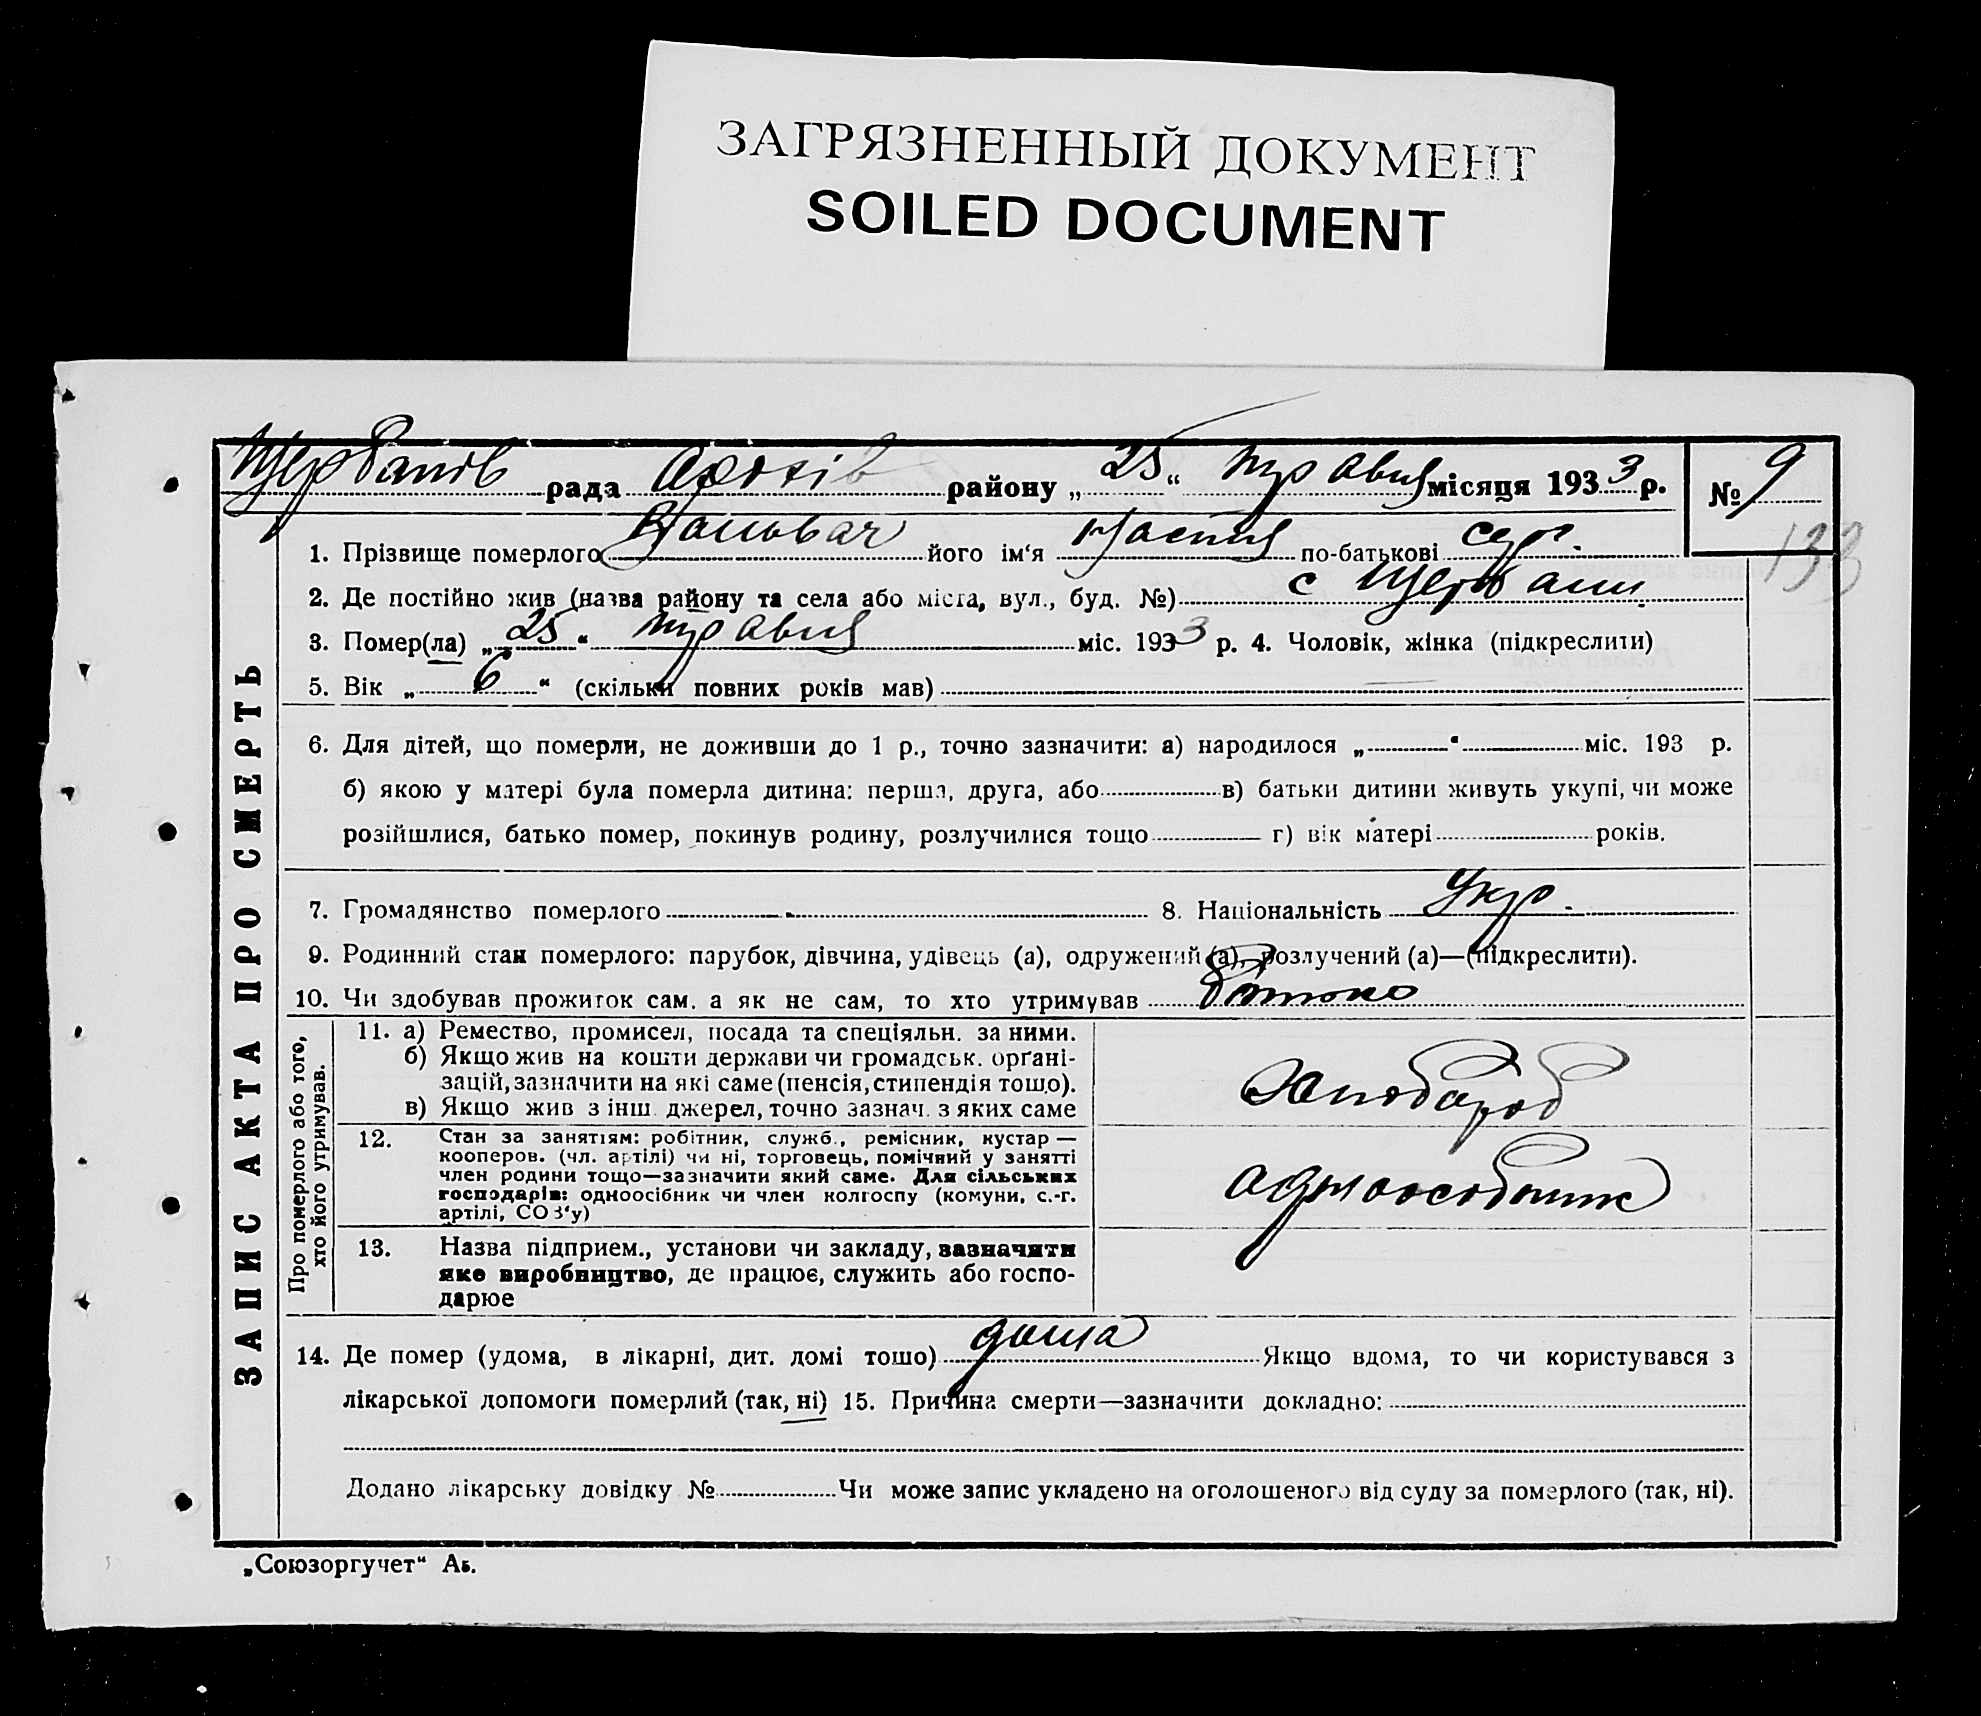 ЗАГРЯЗНЕННЫЙ ДОКУМЕНТ
SOILED DOCUMENT
рада району „25“ травня місяця 1933 р. № 9
133
1. Прізвище померлого його ім‘я Настя по-батькові
2. Де постійно жив (назва району та села або міста, вул., буд. №) с Щербани
3. Помер(ла) „25“ травня міс. 1933 р. 4. Чоловік, жінка (підкреслити)
5. Вік „6“ (скільки повних років мав)
6. Для дітей, що померли, не доживши до 1 р., точно зазначити: а) народилося „ “ міс. 193 р.
б) якою у матері була померла дитина: перша, друга, або в) батьки дитини живуть укупі, чи може
розійшлися, батько помер, покинув родину, розлучилися тощо г) вік матері років.
7. Громадянство померлого 8. Національність Укр.
9. Родинний стан померлого: парубок, дівчина, удівець (а), одружений (а), розлучений (а)—(підкреслити).
10. Чи здобував прожиток сам, а як не сам, то хто утримував батько
ЗАПИС АКТА ПРО СМЕРТЬ
Про померлого або того,
хто його утримував.
11. а) Ремество, промисел, посада та спеціяльн. за ними.
б) Якщо жив на кошти держави чи громадськ. орґані-
зацій, зазначити на які саме (пенсія, стипендія тощо).
в) Якщо жив з інш. джерел, точно зазнач. з яких саме
хлібороб
12. Стан за заняттям: робітник, служб., ремісник, кустар —
кооперов. (чл. артілі) чи ні, торговець, помічний у занятті
член родини тощо—зазначити який саме. Для сільських
господарів: одноосібник чи член колгоспу (комуни, с.-г.
артілі, СОЗ‘у)
одноосібник
13. Назва підприєм., установи чи закладу, зазначити
яке виробництво, де працює, служить або госпо-
дарює
14. Де помер (удома, в лікарні, дит. домі тошо) дома Якщо вдома, то чи користувався з
лікарської допомоги померлий (так, ні) 15. Причина смерти—зазначити докладно:
Додано лікарську довідку № Чи може запис укладено на оголошеного від суду за померлого (так, ні).
„Союзоргучет“ Аь.